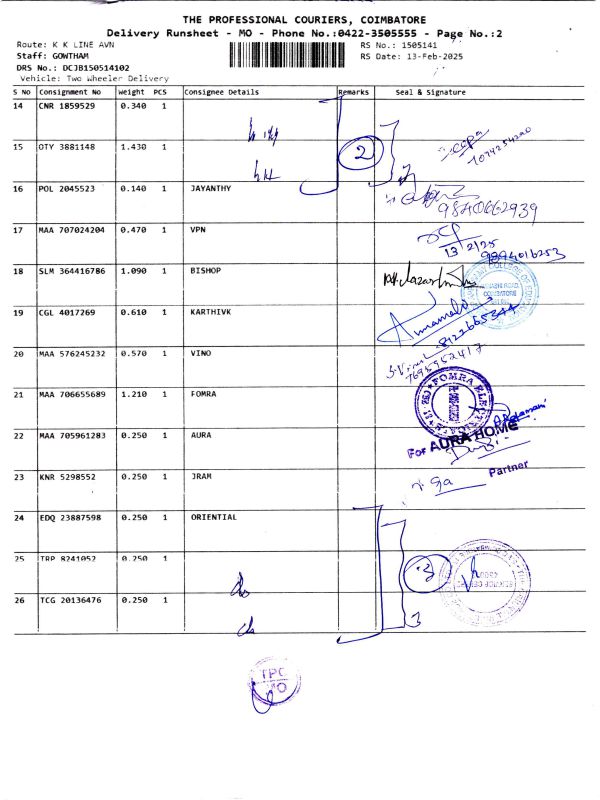 THE PROFESSIONAL COURIERS, COIMBATORE
Delivery Runsheet - MO - Phone No.:0422-3505555 - Page No.:2
Route: K K LINE AVN RS No.: 1505141
Staff: GOWTHAM RS Date: 13-Feb-2025
DRS No.: DCJB150514102
Vehicle: Two Wheeler Delivery
S No Consignment No Weight PCS Consignee Details Remarks Seal & Signature
14 CNR 1859529 0.340 1
15 OTY 3881148 1.430 1 2
16 POL 2045523 0.140 1 JAYANTHY
9840662939
17 MAA 707024204 0.470 1 VPN
13/2/25
9894016253
18 SLM 364416786 1.090 1 BISHOP
19 CGL 4017269 0.610 1 KARTHIVK
8122665344
20 MAA 576245232 0.570 1 VINO
7695952417
21 MAA 706655689 1.210 1 FOMRA
22 MAA 705961283 0.250 1 AURA
For AURA HOME
23 KNR 5298552 0.250 1 JRAM
Partner
24 EDQ 23887598 0.250 1 ORIENTIAL
25 TRP 8241052 0.250 1 3
26 TCG 20136476 0.250 1
3
TPC
MO